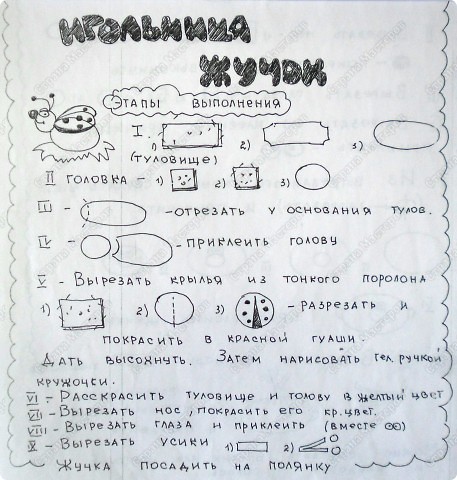 ИГОЛЬНИЦА
ЖУЧОК
ЭТАПЫ ВЫПОЛНЕНИЯ
I 1) 2) 3)
(ТУЛОВИЩЕ)
II ГОЛОВКА 1) 2) 3)
III - - ОТРЕЗАТЬ У ОСНОВАНИЯ ТУЛОВ.
IV - - ПРИКЛЕИТЬ ГОЛОВУ
V - ВЫРЕЗАТЬ КРЫЛЬЯ ИЗ ТОНКОГО ПОРОЛОНА
1) 2) 3) - РАЗРЕЗАТЬ И
ПОКРАСИТЬ В КРАСНОЙ ГУАШИ.
ДАТЬ ВЫСОХНУТЬ. ЗАТЕМ НАРИСОВАТЬ ГЕЛ. РУЧКОЙ
КРУЖОЧКИ.
VI - РАССКРАСИТЬ ТУЛОВИЩЕ И ГОЛОВУ В ЖЕЛТЫЙ ЦВЕТ
VII - ВЫРЕЗАТЬ НОС, ПОКРАСИТЬ ЕГО КР. ЦВЕТ.
VIII - ВЫРЕЗАТЬ ГЛАЗА И ПРИКЛЕИТЬ (ВМЕСТЕ )
X - ВЫРЕЗАТЬ УСИКИ 1) 2)
ЖУЧКА ПОСАДИТЬ НА ПОЛЯНКУ